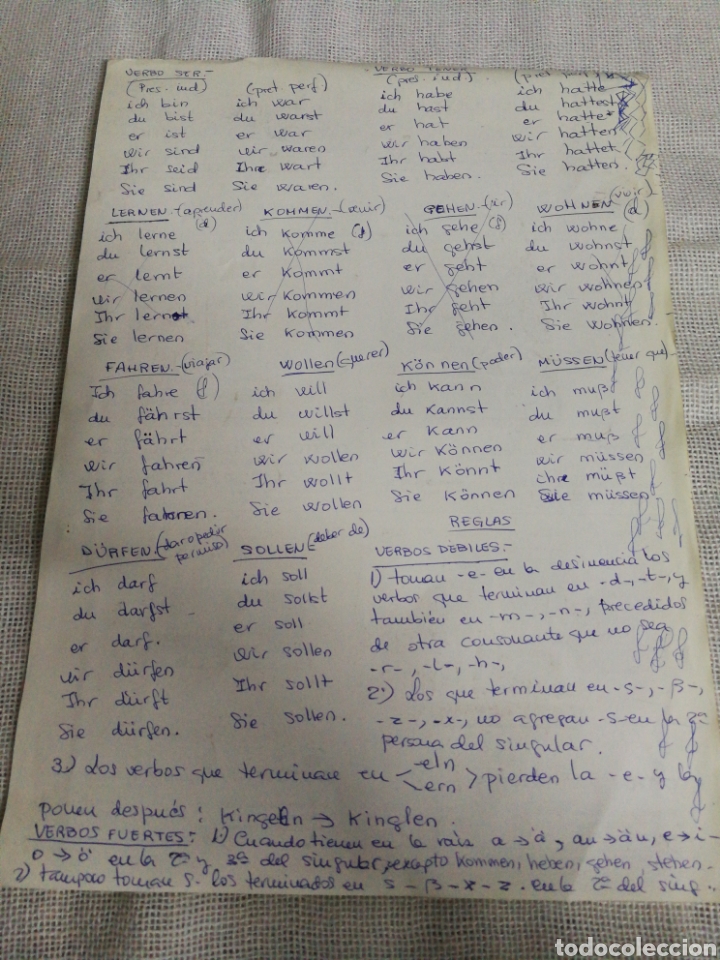 VERBO SER.- VERBO TENER
(Pres. ind) (pret. perf) (pres. ind) (pret. perf)
ich bin ich war ich habe ich hatte
du bist du warst du hast du hattest
er ist er war er hat er hatte
wir sind wir waren wir haben wir hatten
Ihr seid Ihr wart Ihr habt Ihr hattet
Sie sind Sie waren. Sie haben. Sie hatten.
LERNEN-(aprender) KOMMEN-(venir) GEHEN-(ir) WOHNEN (vivir)
(d) (f) (f) (d)
ich lerne ich komme ich gehe ich wohne
du lernst du kommst du gehst du wohnst
er lernt er kommt er geht er wohnt
wir lernen wir kommen wir gehen wir wohnen
Ihr lernt Ihr kommt Ihr geht Ihr wohnt
Sie lernen Sie kommen Sie gehen. Sie wohnen.
FAHREN-(viajar) Wollen (querer) KÖNNEN (poder) MÜSSEN (tener que)
Ich fahre (f) ich will ich kann ich muß
du fährst du willst du kannst du mußt
er fährt er will er kann er muß
wir fahren wir wollen wir können wir müssen
Ihr fahrt Ihr wollt Ihr könnt ihr müßt
Sie fahren. Sie wollen Sie können Sie müssen
DÜRFEN (dar o pedir permiso) SOLLEN (deber de)
ich darf ich soll
du darfst du sollst
er darf. er soll
wir dürfen wir sollen
Ihr dürft Ihr sollt
Sie dürfen. Sie sollen.
REGLAS
VERBOS DÉBILES.-
1) toman -e- en la desinencia los
verbos que terminan en -d-, -t-, y
también en -m-, -n-, precedidos
de otra consonante que no sea
-r-, -l-, -h-,
2º) Los que terminan en -s-, -β-,
-z-, -x-, no agregan -s- en la 2ª
persona del singular.
3) Los verbos que terminan en -eln -ern pierden la -e- y la
ponen después: Kingeln → Kinglen.
VERBOS FUERTES: 1) Cuando tienen en la raíz a → ä, au → äu, e → i-
o → ö en la 2ª y 3ª del singular, excepto kommen, heben, gehen, stehen.
2) tampoco toman s. los terminados en s - β - x - z. en la 2ª del sing.
todocoleccion